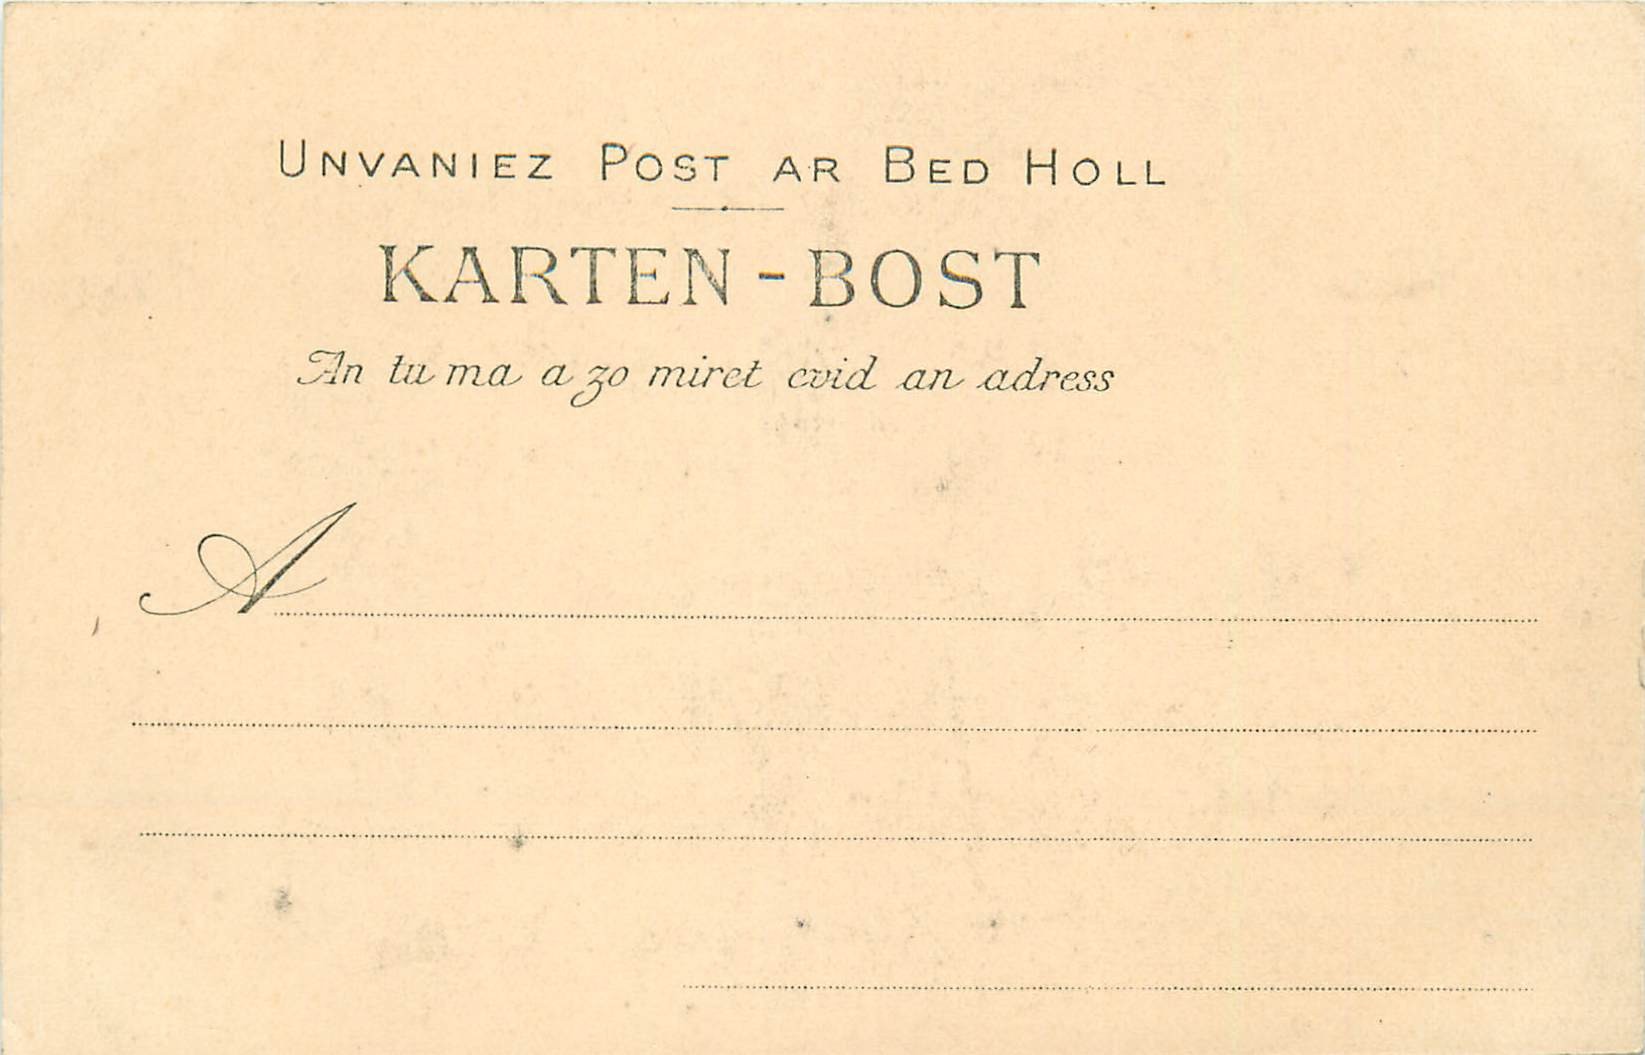 UNVANIEZ POST AR BED HOLL
KARTEN-BOST
An tu ma a zo miret evid an adress
A